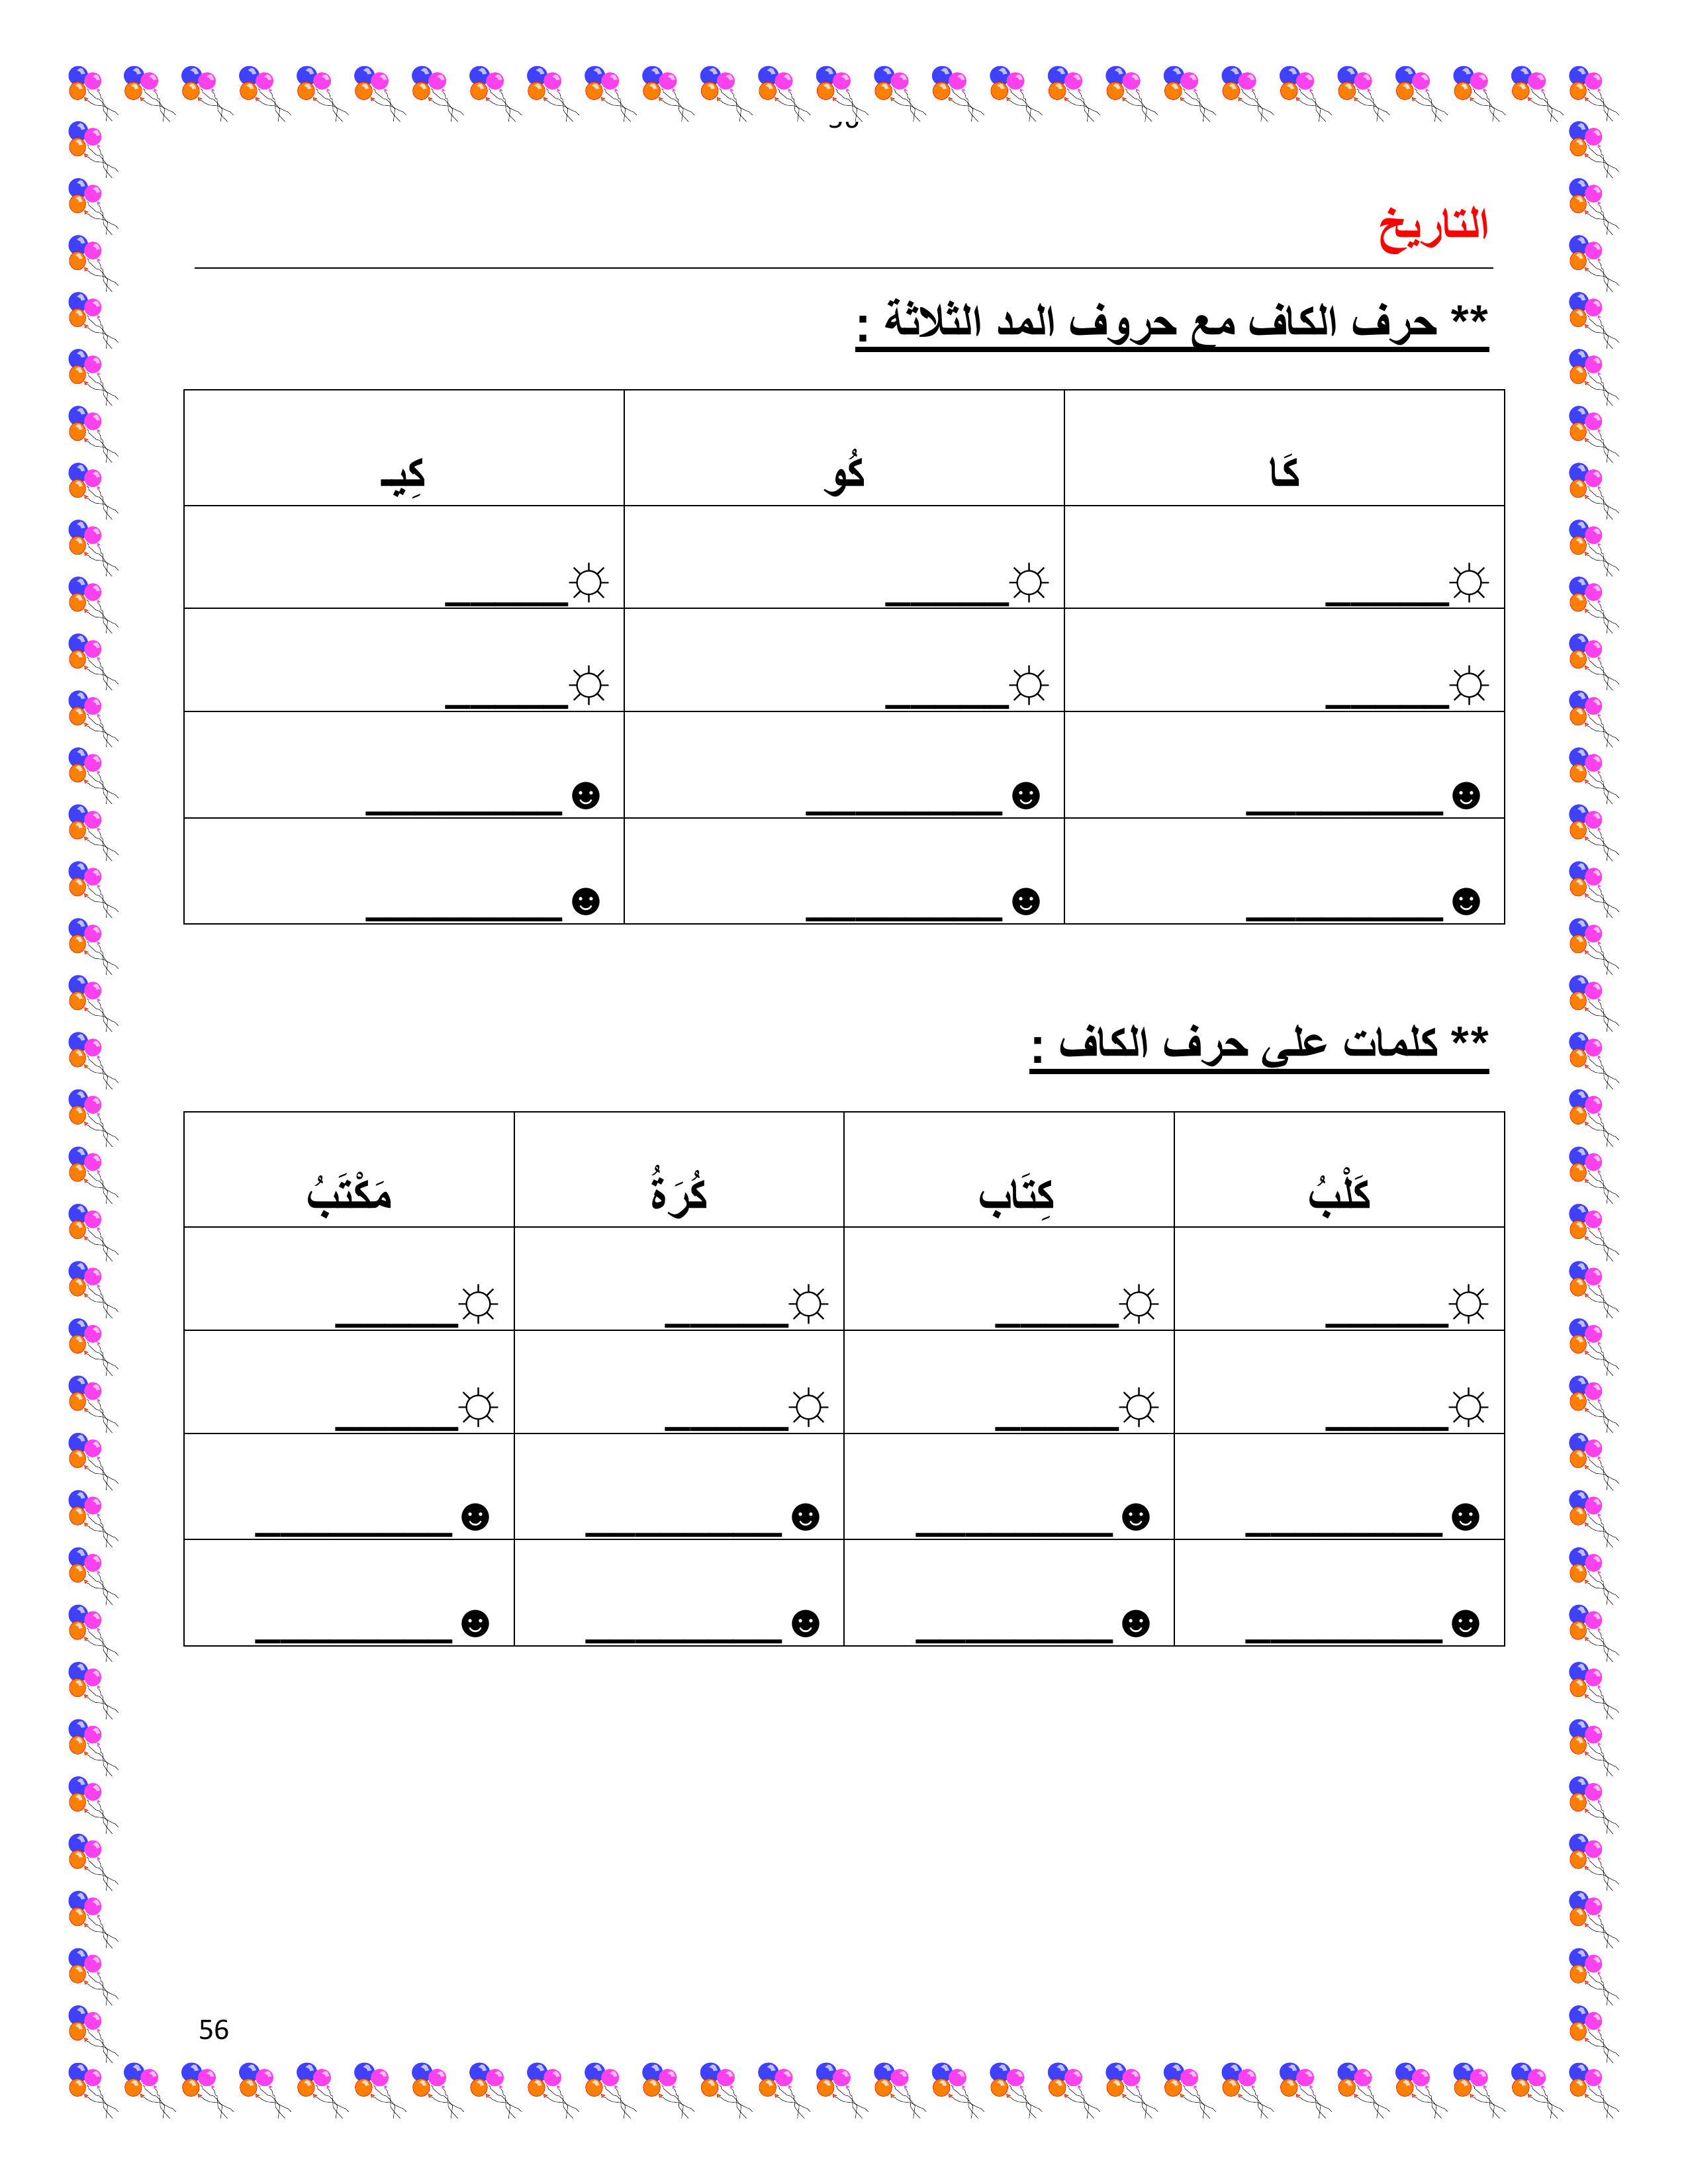 التاريخ
** حرف الكاف مع حروف المد الثلاثة :
كَا كُو كِيـ
☼_____ ☼_____ ☼_____
☼_____ ☼_____ ☼_____
☻________ ☻________ ☻________
☻________ ☻________ ☻________
** كلمات على حرف الكاف :
كَلْبُ كِتَاب كُرَةُ مَكْتَبُ
☼_____ ☼_____ ☼_____ ☼_____
☼_____ ☼_____ ☼_____ ☼_____
☻________ ☻________ ☻________ ☻________
☻________ ☻________ ☻________ ☻________
56